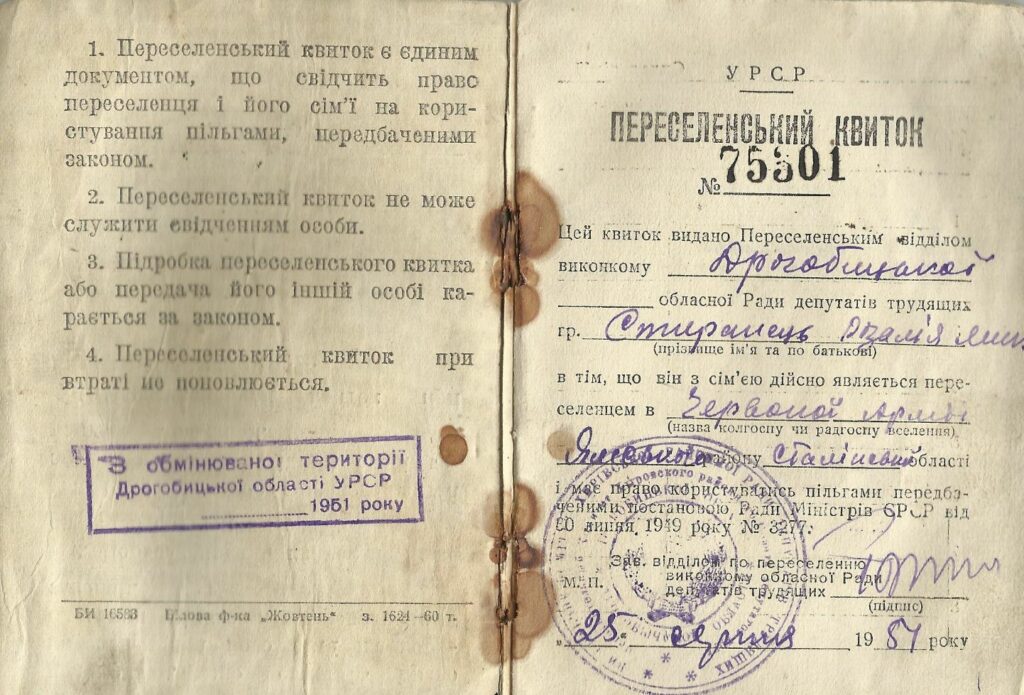 1. Переселенський квиток є єдиним
документом, що свідчить право
переселенця і його сім'ї на кори-
стування пільгами, передбаченими
законом.
2. Переселенський квиток не може
служити свідченням особи.
3. Підробка переселенського квитка
або передача його іншій особі ка-
рається за законом.
4. Переселенський квиток при
втраті не поновлюється.
З обмінюваної території
Дрогобицької області УРСР
1951 року
БИ 16583 Білова ф-ка „Жовтень“ з. 1624—60 т.
УРСР
ПЕРЕСЕЛЕНСЬКИЙ КВИТОК
№ 75301
Цей квиток видано Переселенським відділом
виконкому Дрогобицької
обласної Ради депутатів трудящих
гр. Стиранець
(прізвище ім'я та по батькові)
в тім, що він з сім'єю дійсно являється пере-
селенцем в Червоної Армії
(назва колгоспу чи радгоспу вселення)
району Сталінської області
і має право користуватись пільгами передба-
ченими постановою Ради Міністрів СРСР від
20 липня 1949 року № 3277.
Зав. відділом по переселенню
М. П. виконкому обласної Ради
депутатів трудящих
(підпис)
„25“ серпня 1951 року